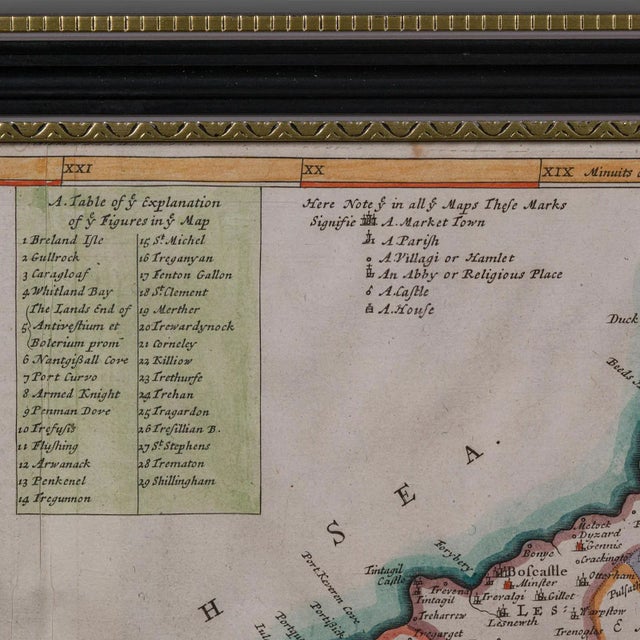 XXI XX XIX Minuits
A Table of ẏ Explanation
of ẏ Figures in ẏ Map
1 Breland Isle
2 Gullrock
3 Caragloaf
4 Whitland Bay
The Lands End of
5 Antivestium et
Bolerium prom
6 Nantgissall Cove
7 Port Curvo
8 Armed Knight
9 Penman Dove
10 Trefusis
11 Flushing
12 Arwanack
13 Penkenel
14 Tregunnon
15 St. Michel
16 Treganyan
17 Fenton Gallon
18 St Clement
19 Merther
20 Trewardynock
21 Corneley
22 Killiow
23 Trethurfe
24 Trehan
25 Tragardon
26 Tresillian B.
27 St Stephens
28 Trematon
29 Shillingham
Here Note ẏ in all ẏ Maps These Marks
Signifie A. Market Town
A Parish
A Villagi or Hamlet
An Abby or Religious Place
A. Castle
A. House
Duck
Beeds
H S E A .
Melock
Dyzard
Gennis
Crackingto
Bonye
Torybery
Boscastle
Otterham
Tintagil
Castle
Minster
Trevena
Tintagil
Trevalgi
Gillot
Pulsa
LES
Warpstow
Treharrew
Lesnewth
Port Keveren Cove
Portissick
Portqui
Tregarget
Trenoglos